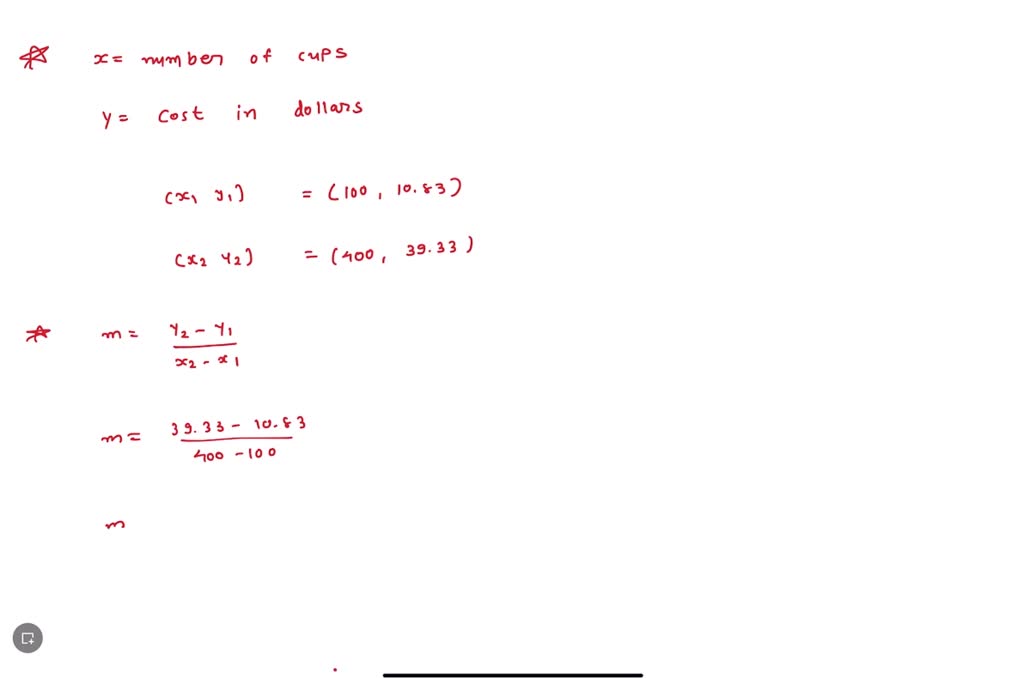 x = number of cups
y = cost in dollars
(x₁ y₁) = (100, 10.83)
(x₂ y₂) = (400, 39.33)
m = y₂ - y₁ / x₂ - x₁
m = 39.33 - 10.83 / 400 - 100
m